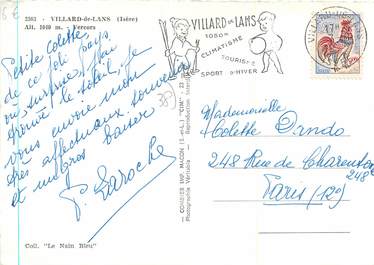 2385 - VILLARD-de-LANS (Isère)
Alt. 1040 m. - Vercors
Petite Colette,
de ce joli pays
où, surprise, j'ai
trouvé le soleil, je
vous envoie mon
très affectueux souvenir
et un gros baiser
P. Laroche
Coll. "Le Nain Bleu"
COMBIER IMP. MACON (S.-et-L.) "CIM"
Photographie Véritable - Reproduction Interdite
VILLARD DE LANS
1050m
CLIMATISME
TOURISME
SPORT D'HIVER
Mademoiselle
Colette Dando
248 Rue de Charenton
248
Paris (12e)